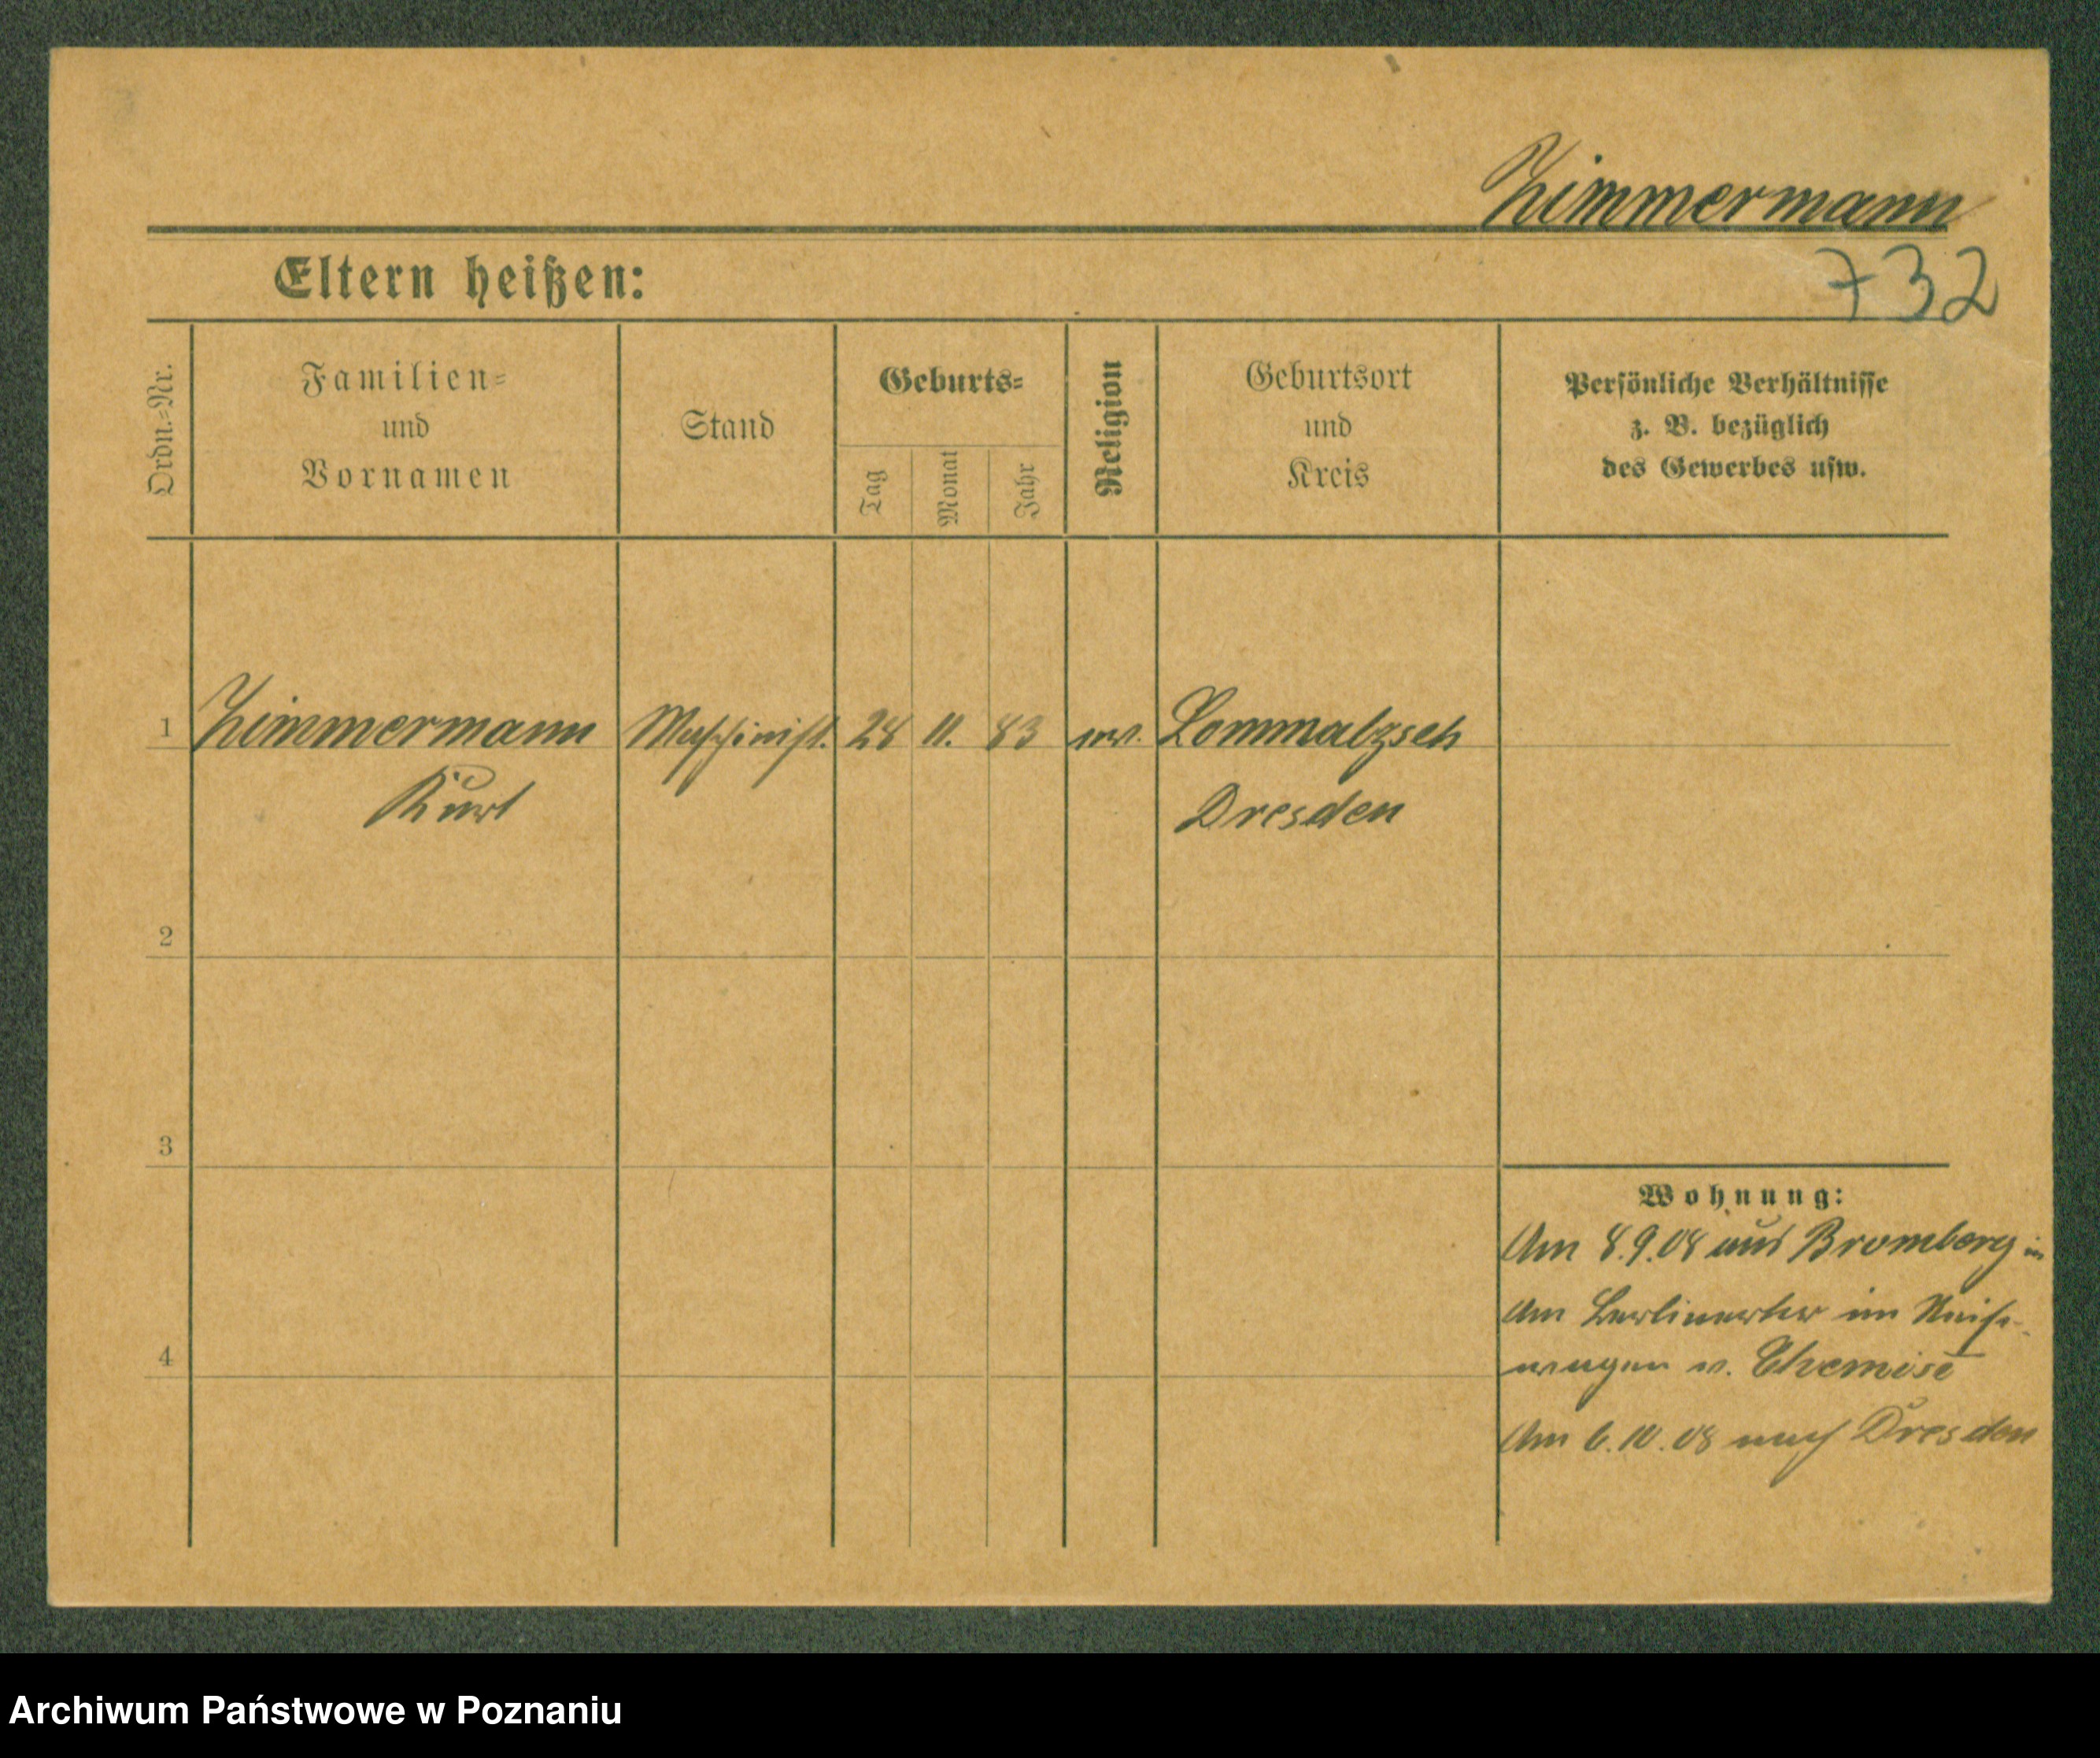 Zimmermann
732
Eltern heißen:
Ordn.=Nr.
Familien=
und
Vornamen
Stand
Geburts=
Tag
Monat
Jahr
Religion
Geburtsort
und
Kreis
Persönliche Verhältnisse
z. B. bezüglich
des Gewerbes usw.
1 Zimmermann Maschinist. 28 11. 83 ev. Lommatzsch
Kurt Dresden
2
3
4
Wohnung:
Am 8.9.08 aus Bromberg in
Am Berlinerthor im Reise-
wagen v. Chemise
Am 6.10.08 nach Dresden
Archiwum Państwowe w Poznaniu